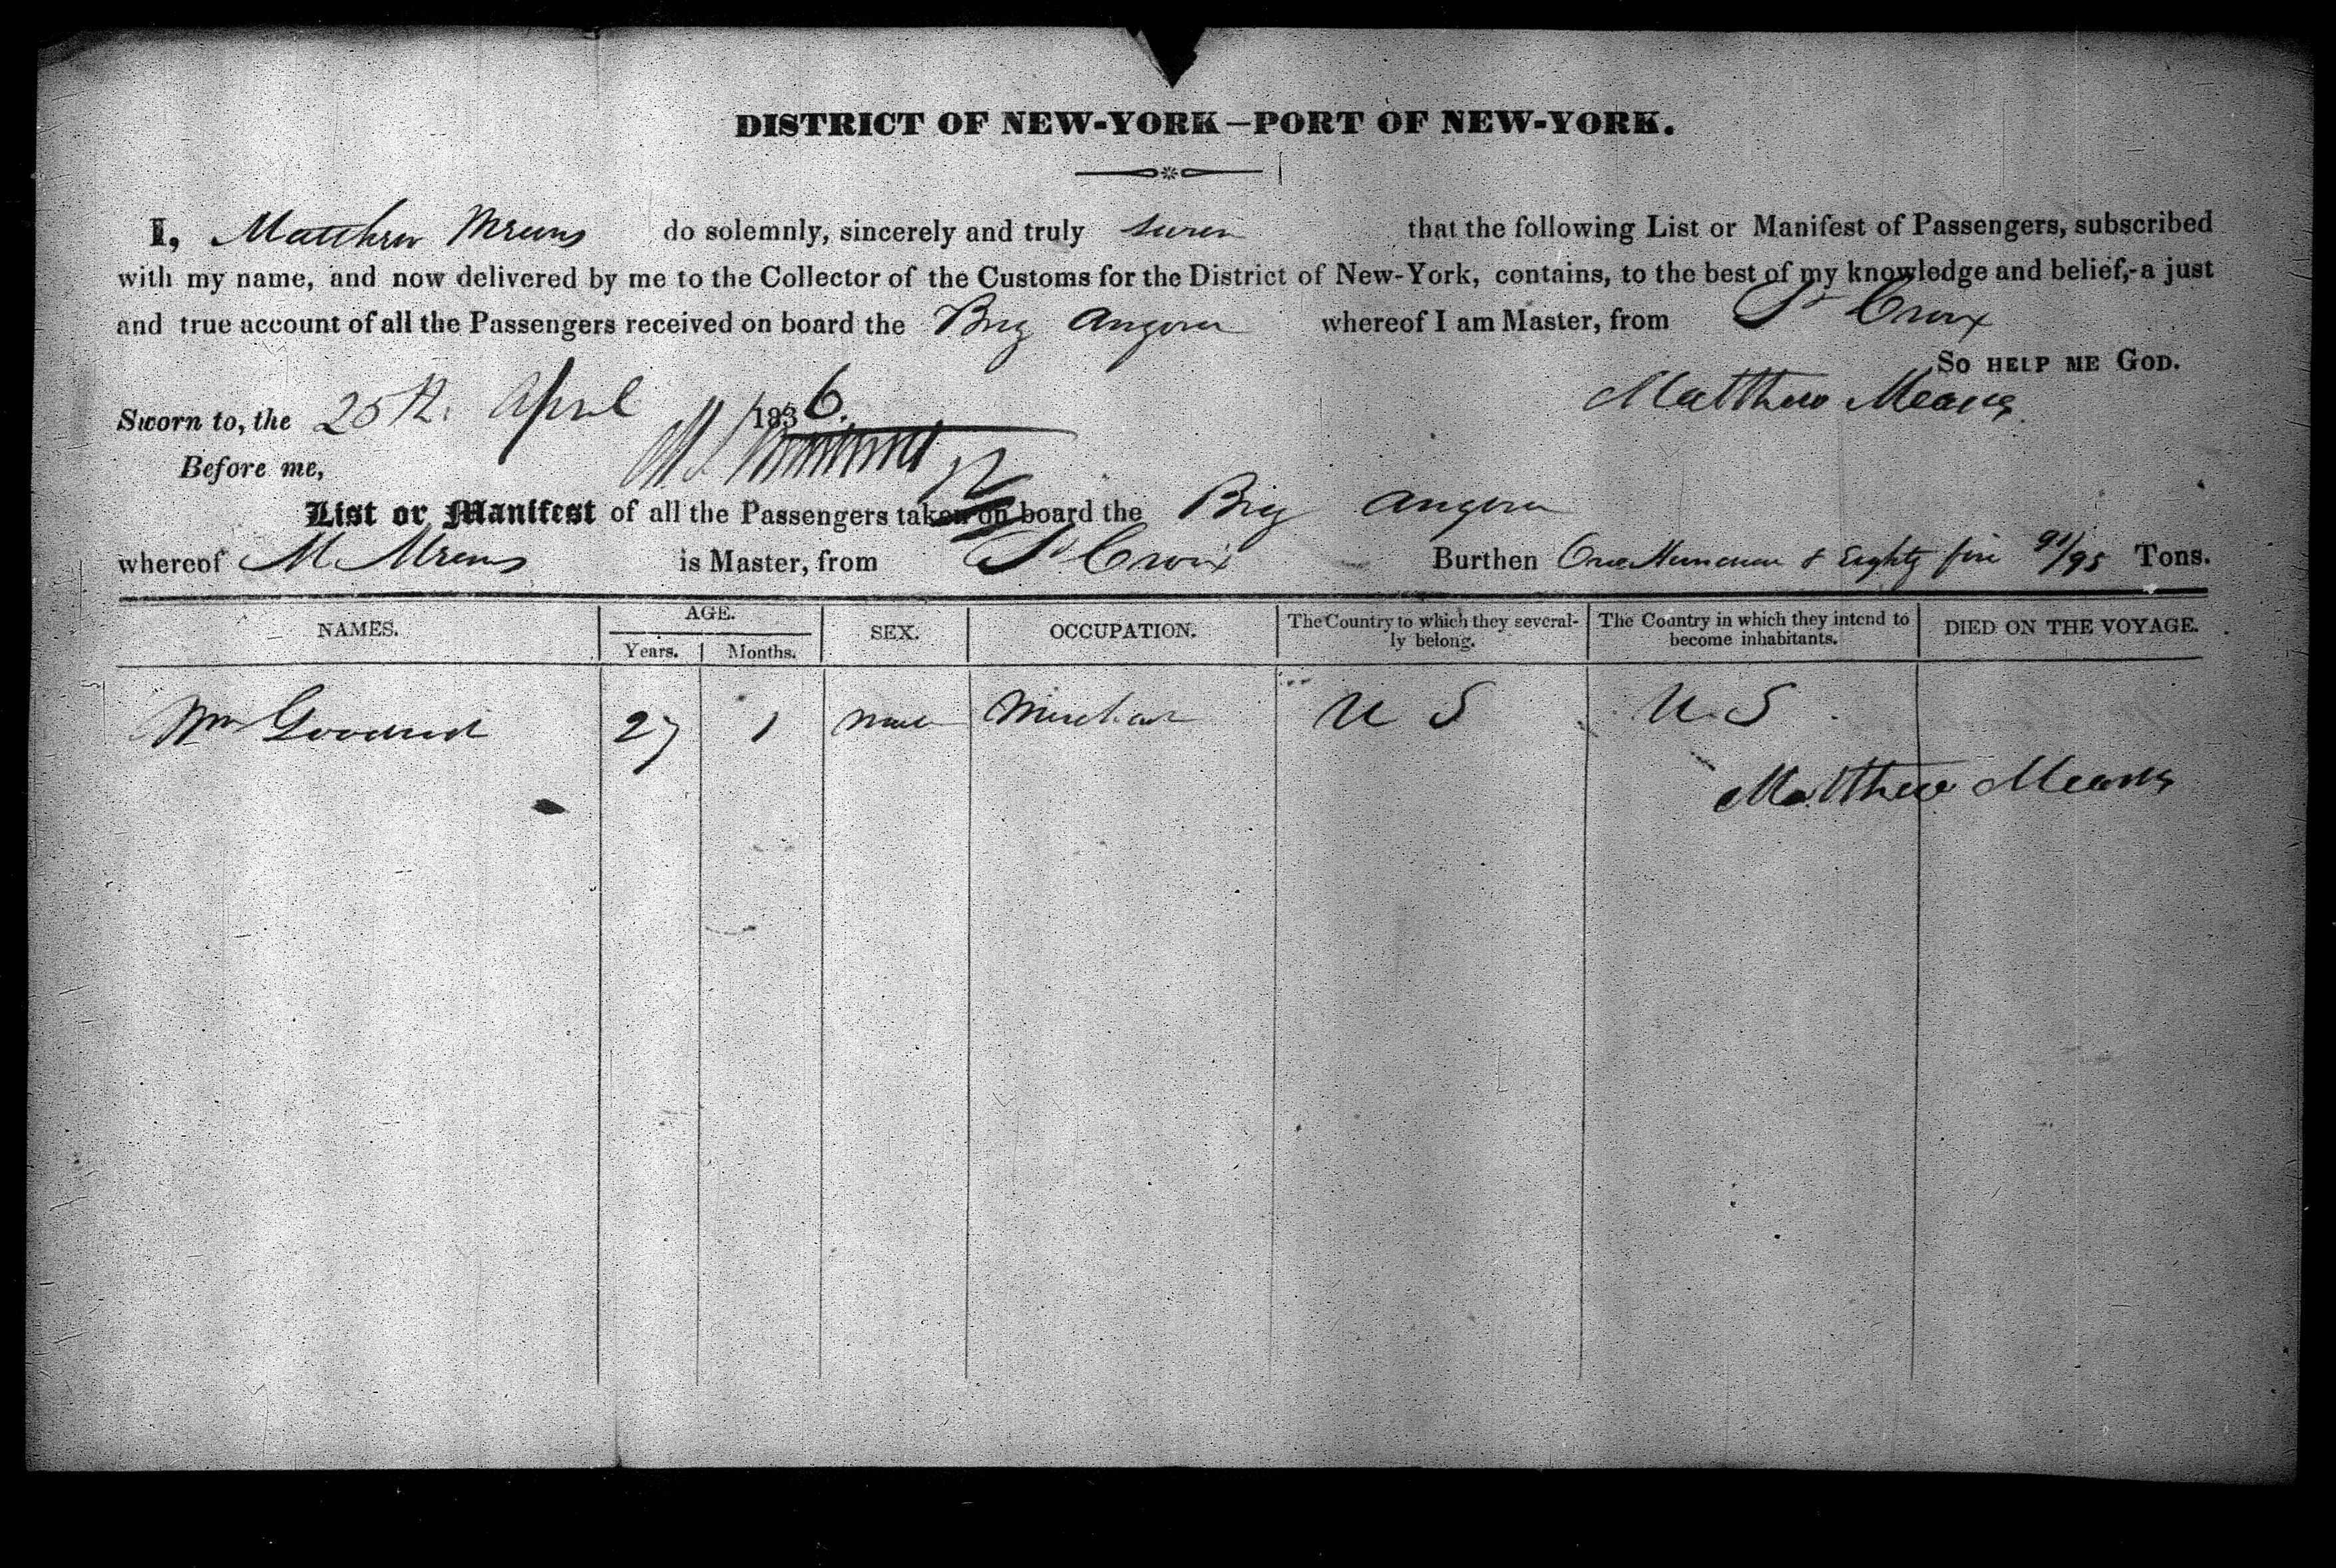 DISTRICT OF NEW-YORK—PORT OF NEW-YORK.
I, Matthew Means do solemnly, sincerely and truly swear that the following List or Manifest of Passengers, subscribed
with my name, and now delivered by me to the Collector of the Customs for the District of New-York, contains, to the best of my knowledge and belief, a just
and true account of all the Passengers received on board the Brig Angora whereof I am Master, from St Croix
So help me God.
Sworn to, the 25th. April 1836. Matthew Means
Before me,
List or Manifest of all the Passengers taken on board the Brig Angora
whereof M Means is Master, from St Croix Burthen One Hundred & Eighty five 91/95 Tons.
NAMES. AGE. Years. Months. SEX. OCCUPATION. The Country to which they severally belong. The Country in which they intend to become inhabitants. DIED ON THE VOYAGE.
Wm Goodrich 27 1 Male Merchant U S U. S
Matthew Means